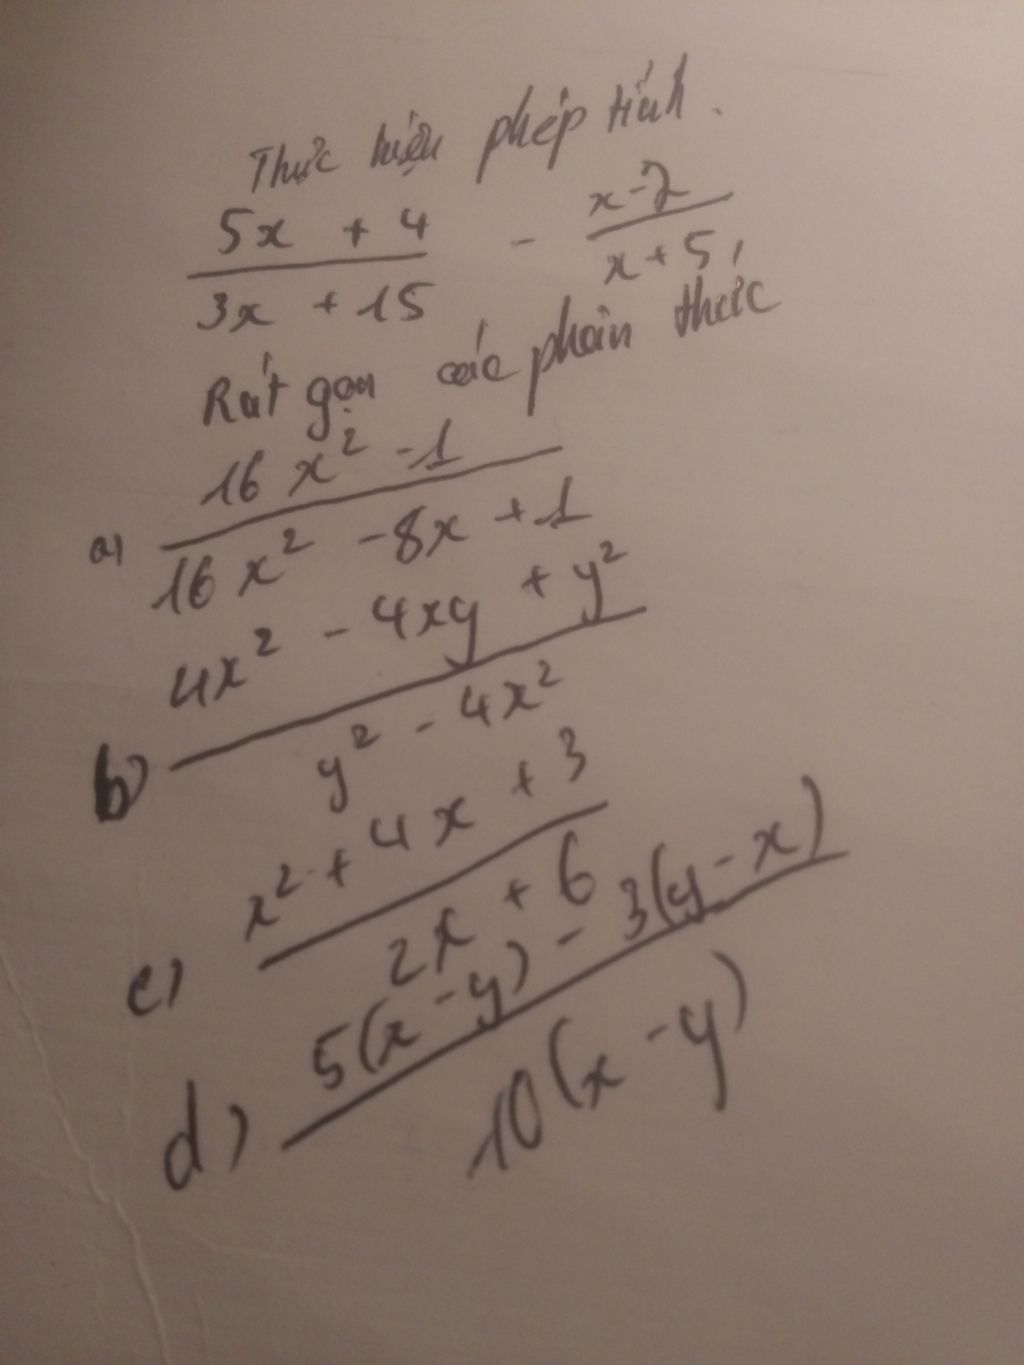 Thực hiện phép tính.
5x + 4 - x-2
3x + 15 x + 5
Rút gọn các phân thức
16x² - 1
a) 16x² - 8x + 1
4x² - 4xy + y²
b) y² - 4x²
x² + 4x + 3
c) 2x + 6
5(x - y) - 3(y - x)
d) 10(x - y)